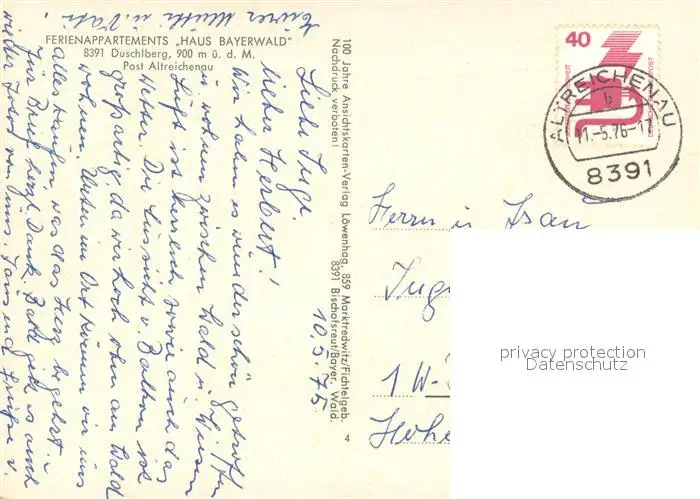 FERIENAPPARTEMENTS „HAUS BAYERWALD"
8391 Duschlberg, 900 m ü. d. M.
Post Altreichenau
10.5.75
Liebe Inge
lieber Herbert!
Wir haben es wunderschön getroffen
u. wohnen zwischen Wald u. Wiesen
Luft ist herrlich sowie auch das
Wetter. Die Aussicht v. Balkon ist
großartig, da wir hoch oben am Wald
wohnen. Unten im Ort können wir uns
alles kaufen, was das Herz begehrt.
Für Brief herzl. Dank. Bald geht es auch
wieder von uns. und Grüße v.
Eurer Mutti u. Vati.
100 Jahre Ansichtskarten-Verlag Löwenhag, 859 Marktredwitz/Fichtelgeb.
Nachdruck verboten! 8391 Bischofsreut/Bayer. Wald.
4
40
DEUTSCHE BUNDESPOST
ALTREICHENAU
b
11.-5.76-17
8391
Herrn u. Frau
Inge
1 W-
Hohe
privacy protection
Datenschutz